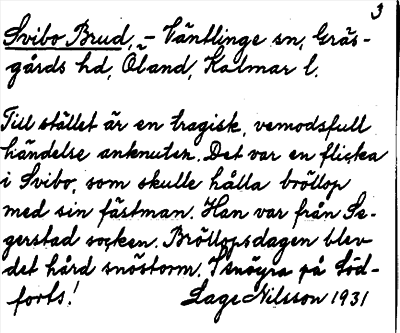 3
Svibo Brud, - Ventlinge sn, Gräs-
gårds hd, Öland, Kalmar l.
Till stället är en tragisk, vemodsfull
händelse anknuten. Det var en flicka
i Svibo, som skulle hålla bröllop
med sin fästman. Han var från Se-
gerstad socken. Bröllopsdagen blev
det hård snöstorm. I snöyra på
forts! Lage Nilsson 1931